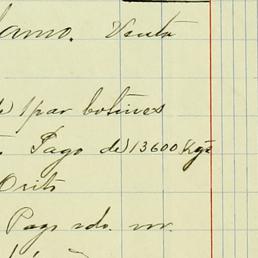 lamo. Venta
de 1 par botines
Pago de 13600 Kgs
Pago sdo. m.